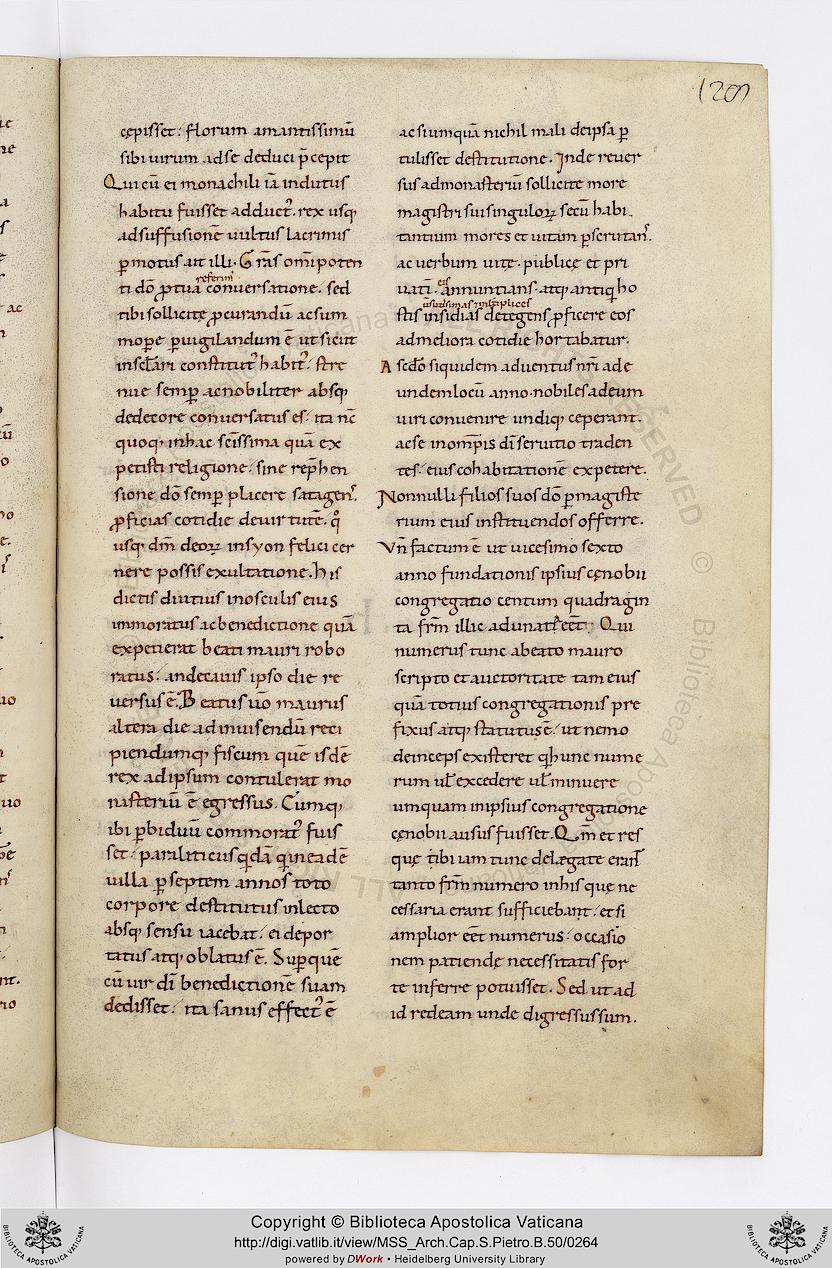 129
cępisset: florum amantissimū
sibi uirum adse deduci p̄cepit
Qui cū ei monachili iā indutus
habitu fuisset adduct᷒. rex usq;
adsuffusionē uultus lacrimis
ꝑmotus. ait illi. Gr̄as om̄ipoten
referim᷒
ti dō ꝓtua conuersatione. sed
tibi sollicitę ꝓcurandū acsum
moꝑe ꝑuigilandum ē ut sicut
insc̄lari constitut᷒ habit᷒. stre
nue semꝑ acnobiliter absq;
dedecore conuersatus es. ita nc̄
quoq; inhac sc̄issima quā ex
petisti religione. sine rep̄hen
sione dō semꝑ placere satagens.
ꝓficias cotidie deuirtutē. q̊
usq; dm̄ deoꝝ insyon felici cer
nere possis exultatione. His
dictis diutius inosculis eius
inmoratus acbenedictione quā
expetierat beati mauri robo
ratus. andecauis ipso die re
uersus ē. Beatus ūo maurus
altera die adinuisendū reci
piendumq; fiscum quē isdē
rex adipsum contulerat mo
nasteriū ē egressus. Cumq;
ibi ꝑbiduū commorat᷒ fuis
set. paraliticus qdā qineadē
uilla ꝑseptem annos toto
corpore destitutus inlecto
absq; sensu iacebat. ei depor
tatus atq; oblatus ē. Suꝑquē
cū uir dī benedictionē suam
dedisset. ita sanus effect᷒ ē
acsiumquā nichil mali deipsa ꝑ
tulisset destitutione. Inde reuer
sus admonasteriū sollicite more
magistri suisinguloꝝ secū habi
tantium mores et uitam ꝑscrutans.
ac uerbum uitę. publicę et pri
eis
uatī. annuntians. atq; antiq ho
uersutissimas multiplices
stis insidias detegens ꝓficere eos
admeliora cotidie hortabatur.
A sc̄do siquidem aduentus nr̄i ade
undemlocū anno. nobiles adeum
uiri conuenire undiq; ceperant.
acse inom̄ipis dī seruitio traden
tes. eius cohabitationē expetere.
Nonnulli filios suos dō ꝑmagiste
rium eius instituendos offerre.
Vn̄ factum ē ut uicesimo sexto
anno fundationis ipsius cęnobii
congregatio centum quadragin
ta fr̄m illic adunat eēt. Qui
numerus tunc abeato mauro
scripto et auctoritate tam eius
quā totius congregationis pre
fixus atq; statutus ē. ut nemo
deinceps existeret q hunc nume
rum ul̄ excedere ul̄ minuere
umquam inipsius congregatione
cęnobii ausus fuisset. Qm̄ et res
quę tibi iam tunc delęgate erant
tanto fr̄m numero inhis quę ne
cessaria erant sufficiebant. et si
amplior eēt numerus. occasio
nem patiendę necessitatis for
te inferre potuisset. Sed ut ad
id redeam unde digressus sum.
Copyright © Biblioteca Apostolica Vaticana
http://digi.vatlib.it/view/MSS_Arch.Cap.S.Pietro.B.50/0264
powered by DWork • Heidelberg University Library